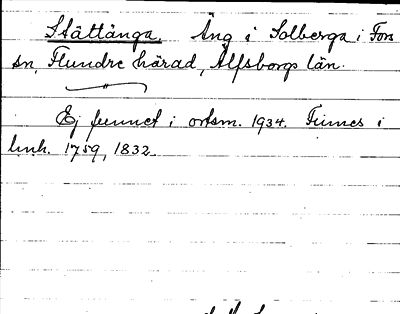 Stättänga. Äng i Solberga i Fors
sn, Flundre härad, Älfsborgs län.
Ej funnet i ortsm. 1934. Finnes i
lmh. 1759, 1832.